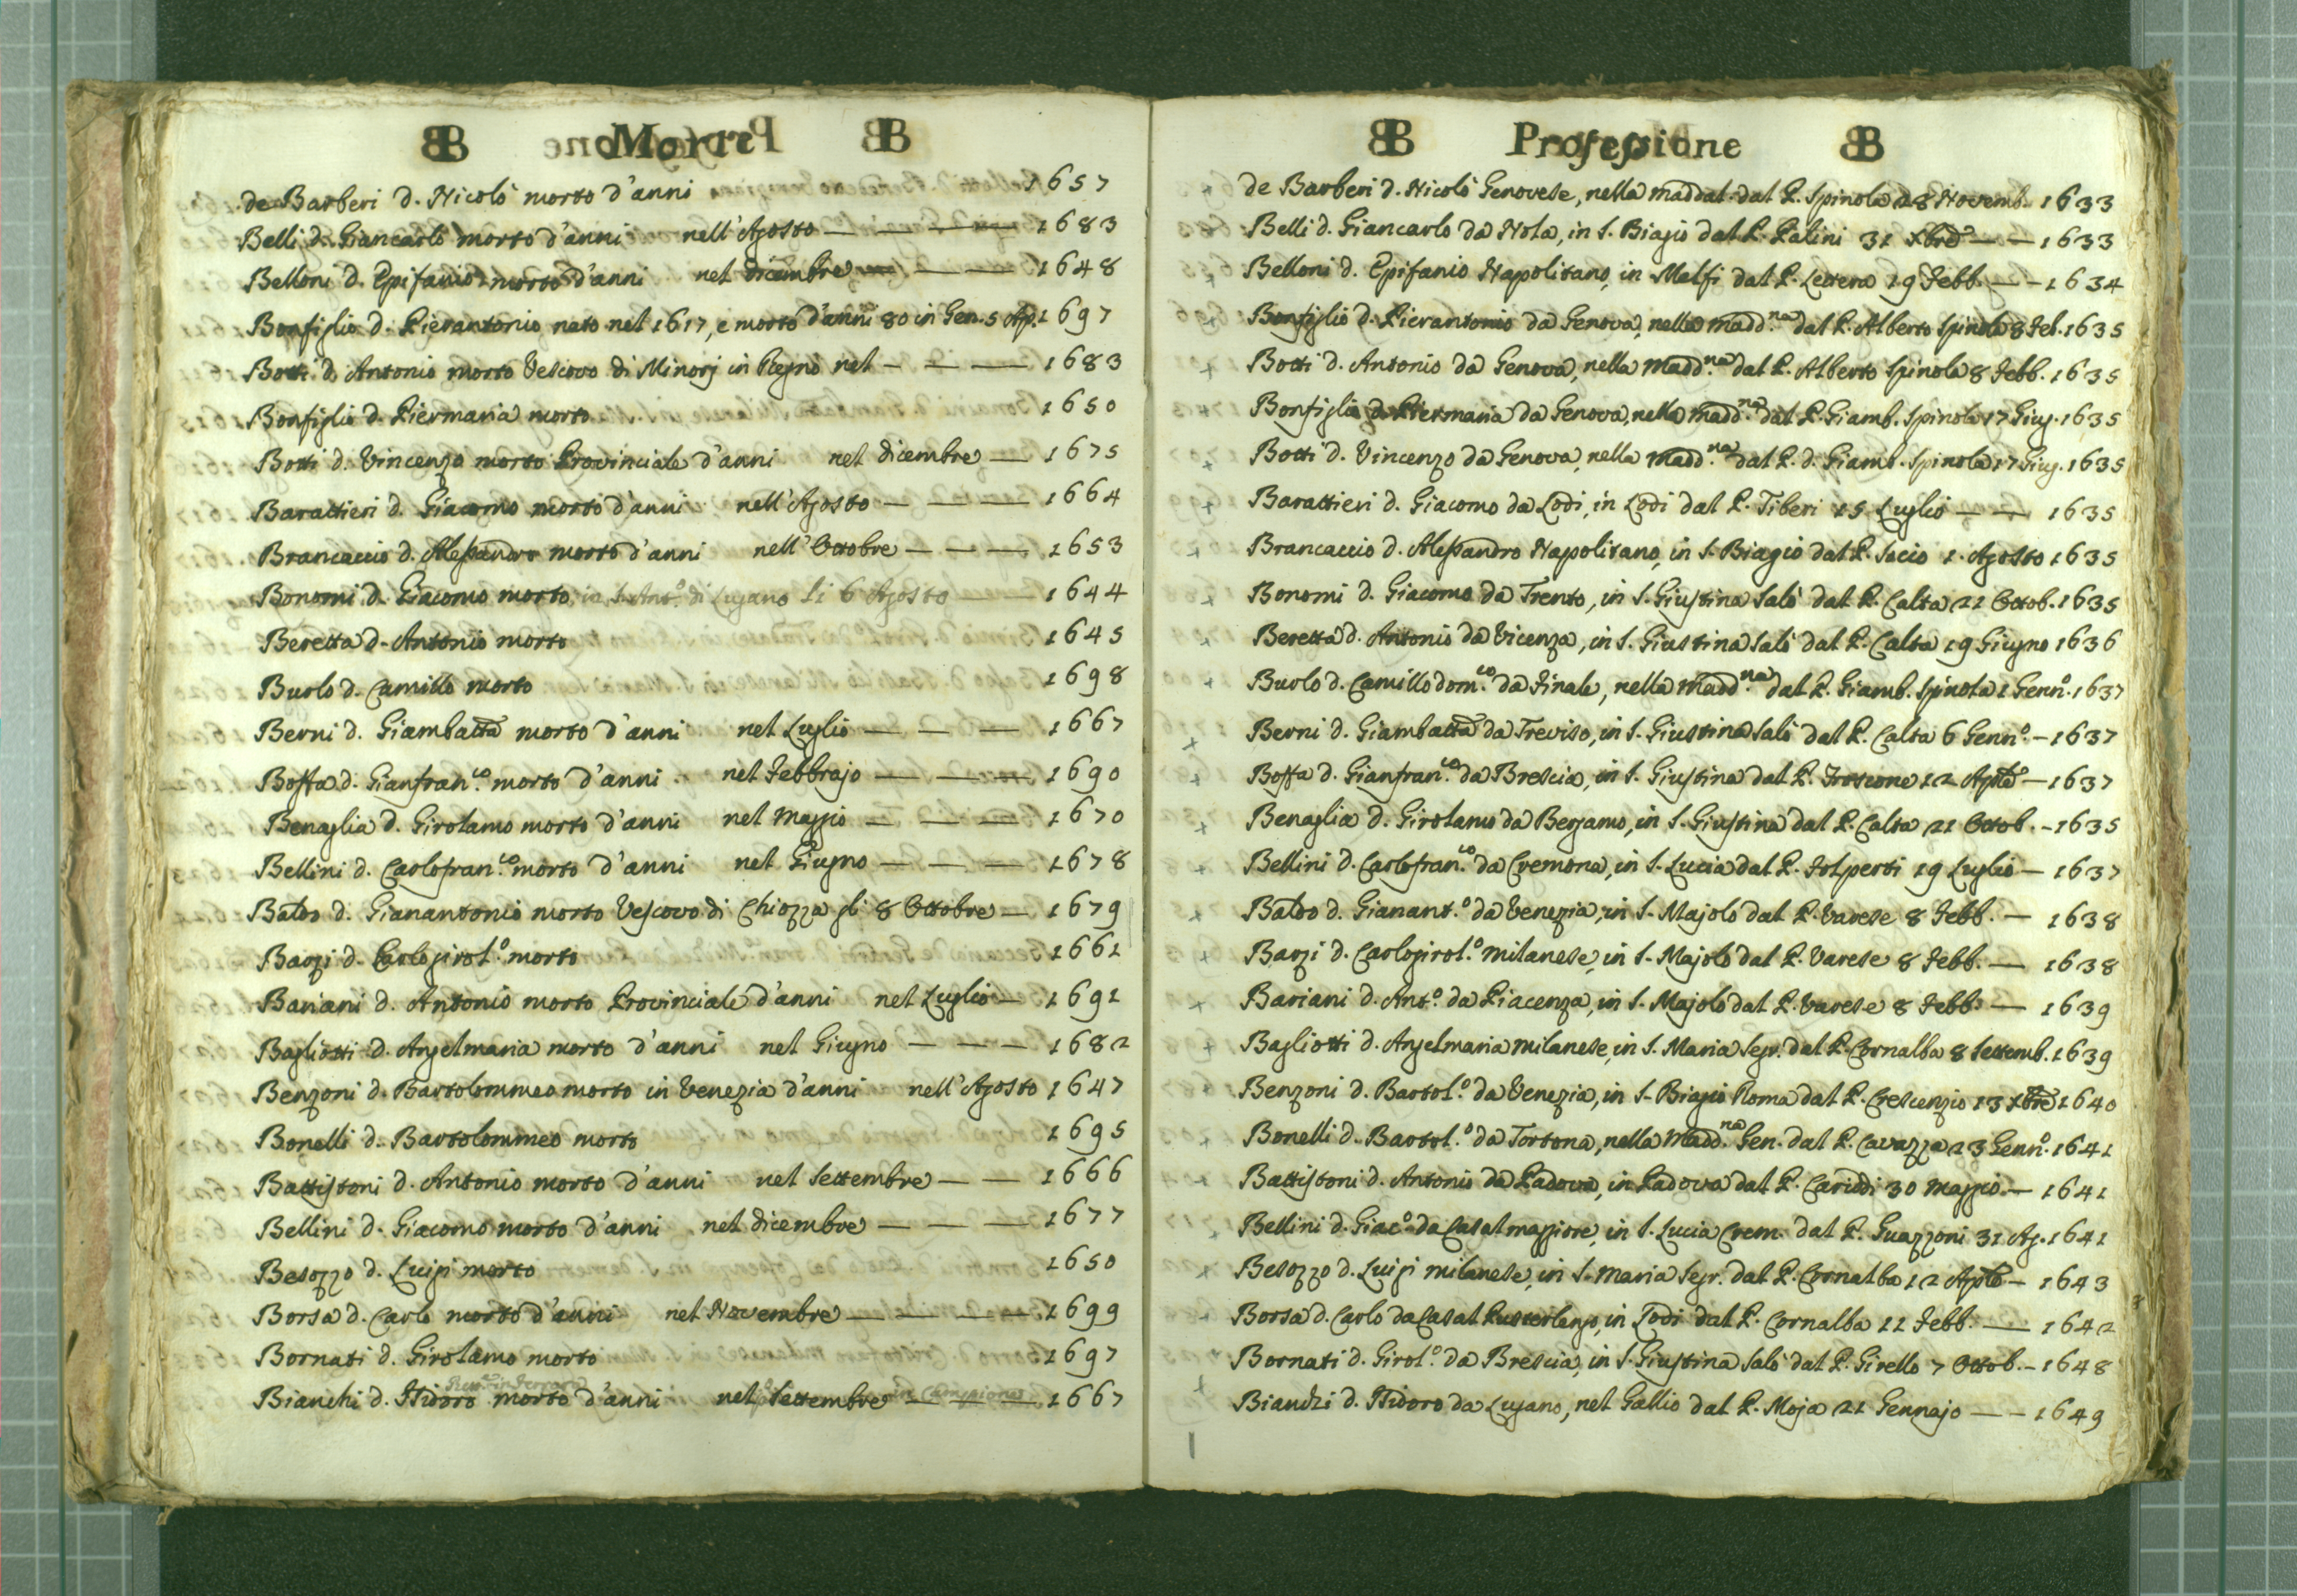 B Morti B
de Barberi d. Nicolò morto d'anni 1657
Belli d. Giancarlo morto d'anni nell'Agosto — — — — 1683
Belloni d. Epifanio morto d'anni nel dicembre — — — 1648
Bonfiglio d. Pierantonio nato nel 1617, e morto d'anni 80 in Gen. 5 Ap. 1697
Botti d. Antonio morto Vescovo di Minorj in Regno nel — — — 1683
Bonfiglio d. Piermaria morto 1650
Botti d. Vincenzo morto Provinciale d'anni nel dicembre — 1675
Barattieri d. Giacomo morto d'anni nell'Agosto — — — 1664
Brancaccio d. Alessandro morto d'anni nell'Octobre — — — 1653
Bonomi d. Giacomo morto in S. Ant.o di Lugano li 6 Agosto — 1644
Beretta d. Antonio morto 1645
Burlo d. Camillo morto 1698
Berni d. Giambatta morto d'anni nel Luglio — — — 1667
Bossa d. Gianfran.co morto d'anni nel Febbrajo — — — 1690
Benaglia d. Girolamo morto d'anni nel Maggio — — — 1670
Bellini d. Carlofran.co morto d'anni nel Giugno — — — 1678
Baldo d. Gianantonio morto Vescovo di Chiozza gli 8 Ottobre — 1679
Barzi d. Carlogirol.o morto 1661
Bariani d. Antonio morto Provinciale d'anni nel Luglio — 1691
Bagliotti d. Angelmaria morto d'anni nel Giugno — — — 1682
Benzoni d. Bartolommeo morto in Venezia d'anni nell'Agosto 1647
Bonelli d. Bartolommeo morto 1695
Battistoni d. Antonio morto d'anni nel Settembre — — 1666
Bellini d. Giacomo morto d'anni nel dicembre — — — 1677
Besozzo d. Luigi morto 1650
Borsa d. Carlo morto d'anni nel Novembre — — — — 1699
Bornati d. Girolamo morto 1697
Bianchi d. Isidoro morto d'anni nel Settembre in Campione — 1667
B Professione B
de Barberi d. Nicolò Genovese, nella maddal. dal P. Spinola 28 Novemb. 1633
Belli d. Giancarlo da Nola, in S. Biagio dal P. Palini 31 Xbre — — 1633
Belloni d. Epifanio Napolitano, in Melfi dal P. Lettera 19 Febb. — — 1634
Bonfiglio d. Pierantonio da Genova, nella madd.na dal P. Alberto Spinola 8 Feb. 1635
Botti d. Antonio da Genova, nella madd.na dal P. Alberto Spinola 8 Febb. 1635
Bonfiglio d. Piermaria da Genova, nella madd.na dal P. Giamb. Spinola 17 Giug. 1635
Botti d. Vincenzo da Genova, nella madd.na dal P. d. Giamb. Spinola 17 Giug. 1635
Barattieri d. Giacomo da Lodi, in Lodi dal P. Tiberi 15 Luglio — — 1635
Brancaccio d. Alessandro Napolitano, in S. Biagio dal P. Socio 1. Agosto 1635
Bonomi d. Giacomo da Trento, in S. Giustina Salò dal P. Calta 21 Octob. 1635
Beretta d. Antonio da Vicenza, in S. Giustina Salò dal P. Calta 19 Giugno 1636
Burlo d. Camillo dom.co da Finale, nella madd.na dal P. Giamb. Spinola 1 Genn.o 1637
Berni d. Giambatta da Treviso, in S. Giustina Salò dal P. Calta 6 Genn.o — 1637
Bossa d. Gianfran.co da Brescia, in S. Giustina dal P. Froscone 12 Agto — 1637
Benaglia d. Girolamo da Bergamo, in S. Giustina dal P. Calta 21 Octob. — 1635
Bellini d. Carlofran.co da Cremona, in S. Lucia dal P. Folperti 19 Luglio — 1637
Baldo d. Gianant.o da Venezia, in S. Majolo dal P. Varese 8 Febb. — 1638
Barzi d. Carlogirol.o milanese, in S. Majolo dal P. Varese 8 Febb. — 1638
Bariani d. Ant.o da Piacenza, in S. Majolo dal P. Varese 8 Febb. — 1639
Bagliotti d. Angelmaria milanese, in S. Maria Segr. dal P. Cornalba 8 Settemb. 1639
Benzoni d. Bartol.o da Venezia, in S. Biagio Roma dal P. Crescenzio 13 Xbre 1640
Bonelli d. Bartol.o da Tortona, nella Madd.na Gen. dal P. Cavazza 23 Genn.o 1641
Battistoni d. Antonio da Padova, in Padova dal P. Cariddi 30 Maggio — 1641
Bellini d. Giac.o da Casalmaggiore, in S. Lucia Crem. dal P. Guazzoni 31 Ag. 1641
Besozzo d. Luigi milanese, in S. Maria Segr. dal P. Cornalba 12 Agto — 1643
Borsa d. Carlo da Casal Pusterlengo, in Lodi dal P. Cornalba 11 Febb. — 1642
Bornati d. Girol.o da Brescia, in S. Giustina Salò dal P. Girello 7 Ottob. — 1648
Bianchi d. Isidoro da Lugano, nel Gallio dal P. Moja 21 Gennajo — — 1649